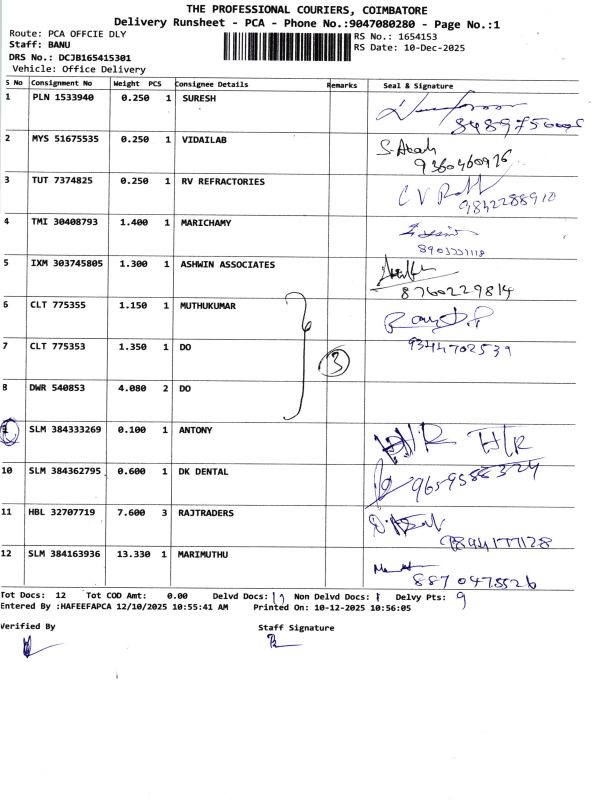 THE PROFESSIONAL COURIERS, COIMBATORE
Delivery Runsheet - PCA - Phone No.:9047080280 - Page No.:1
Route: PCA OFFCIE DLY
RS No.: 1654153
Staff: BANU
RS Date: 10-Dec-2025
DRS No.: DCJB165415301
Vehicle: Office Delivery
S No Consignment No Weight PCS Consignee Details Remarks Seal & Signature
1 PLN 1533940 0.250 1 SURESH
2 MYS 51675535 0.250 1 VIDAILAB
9360460976
3 TUT 7374825 0.250 1 RV REFRACTORIES
9842288910
4 TMI 30408793 1.400 1 MARICHAMY
5 IXM 303745805 1.300 1 ASHWIN ASSOCIATES
8760229814
6 CLT 775355 1.150 1 MUTHUKUMAR
7 CLT 775353 1.350 1 DO 3 9344702539
8 DWR 540853 4.080 2 DO
9 SLM 384333269 0.100 1 ANTONY H/R H/R
10 SLM 384362795 0.600 1 DK DENTAL
9659588324
11 HBL 32707719 7.600 3 RAJTRADERS
9894177128
12 SLM 384163936 13.330 1 MARIMUTHU
8870475526
Tot Docs: 12 Tot COD Amt: 0.00 Delvd Docs: 11 Non Delvd Docs: 1 Delvy Pts: 9
Entered By :HAFEEFAPCA 12/10/2025 10:55:41 AM Printed On: 10-12-2025 10:56:05
Verified By Staff Signature